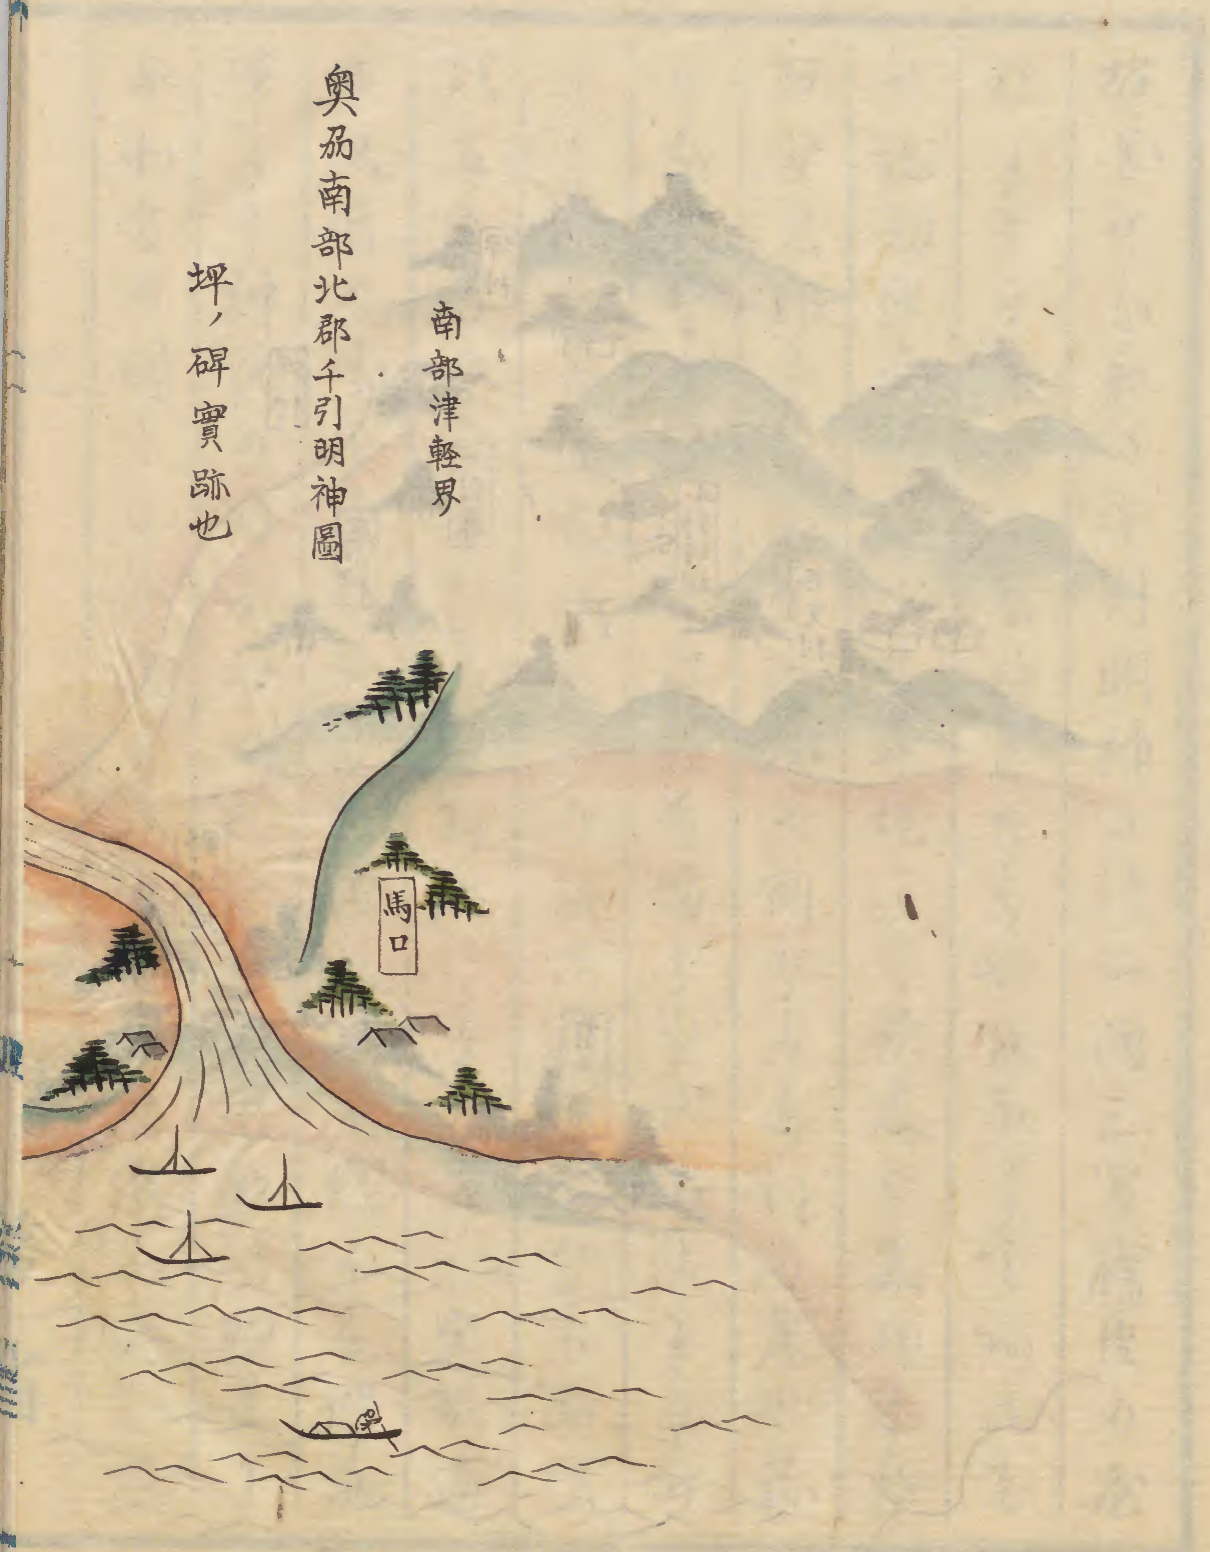 南部津軽界
奥刕南部北郡千引明神圖
坪ノ碑實跡也
馬口